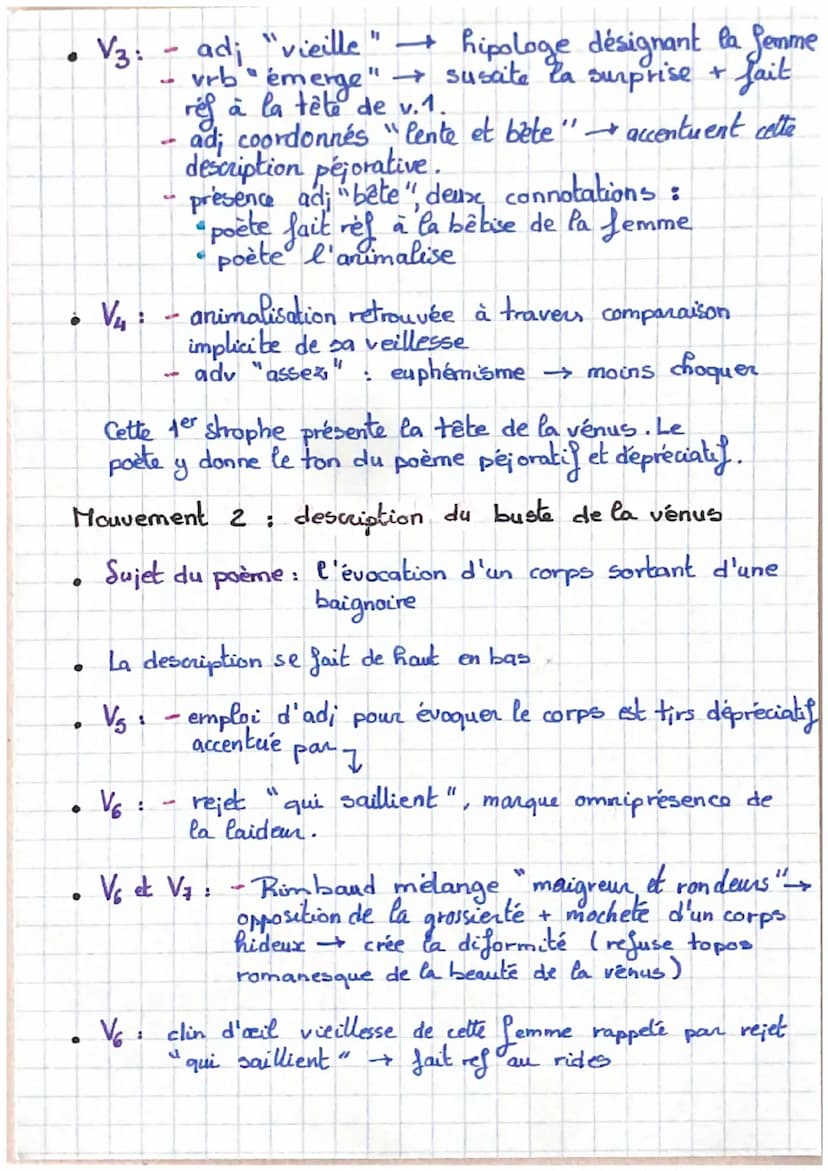 • V3 : - adj "vieille" → hipologe désignant la femme
- vrb "émerge" → suscite la surprise + fait
réf à la tête de v.1.
- adj coordonnés "lente et bête" → accentuent cette
description péjorative.
- présence adj "bête", deux connotations :
• poète fait réf à la bêtise de la femme
• poète l'animalise
• V4 : - animalisation retrouvée à travers comparaison
implicite de sa veillesse
- adv "assez" : euphémisme → moins choquer
Cette 1er strophe présente la tête de la vénus. Le
poète y donne le ton du poème péjoratif et dépréciatif.
Mouvement 2 : description du buste de la vénus
• Sujet du poème : l'évocation d'un corps sortant d'une
baignoire
• La description se fait de haut en bas.
• V5 : - emploi d'adj pour évoquer le corps est tjrs dépréciatif
accentué par ↴
• V6 : - rejet "qui saillient", marque omniprésence de
la laideur.
• V6 et V7 : - Rimbaud mélange "maigreur et rondeurs" →
opposition de la grossierté + mocheté d'un corps
hideux → crée la diformité (refuse topos
romanesque de la beauté de la vénus)
• V6 : clin d'œil vieillesse de cette femme rappelé par rejet
"qui saillient" → fait ref au rides